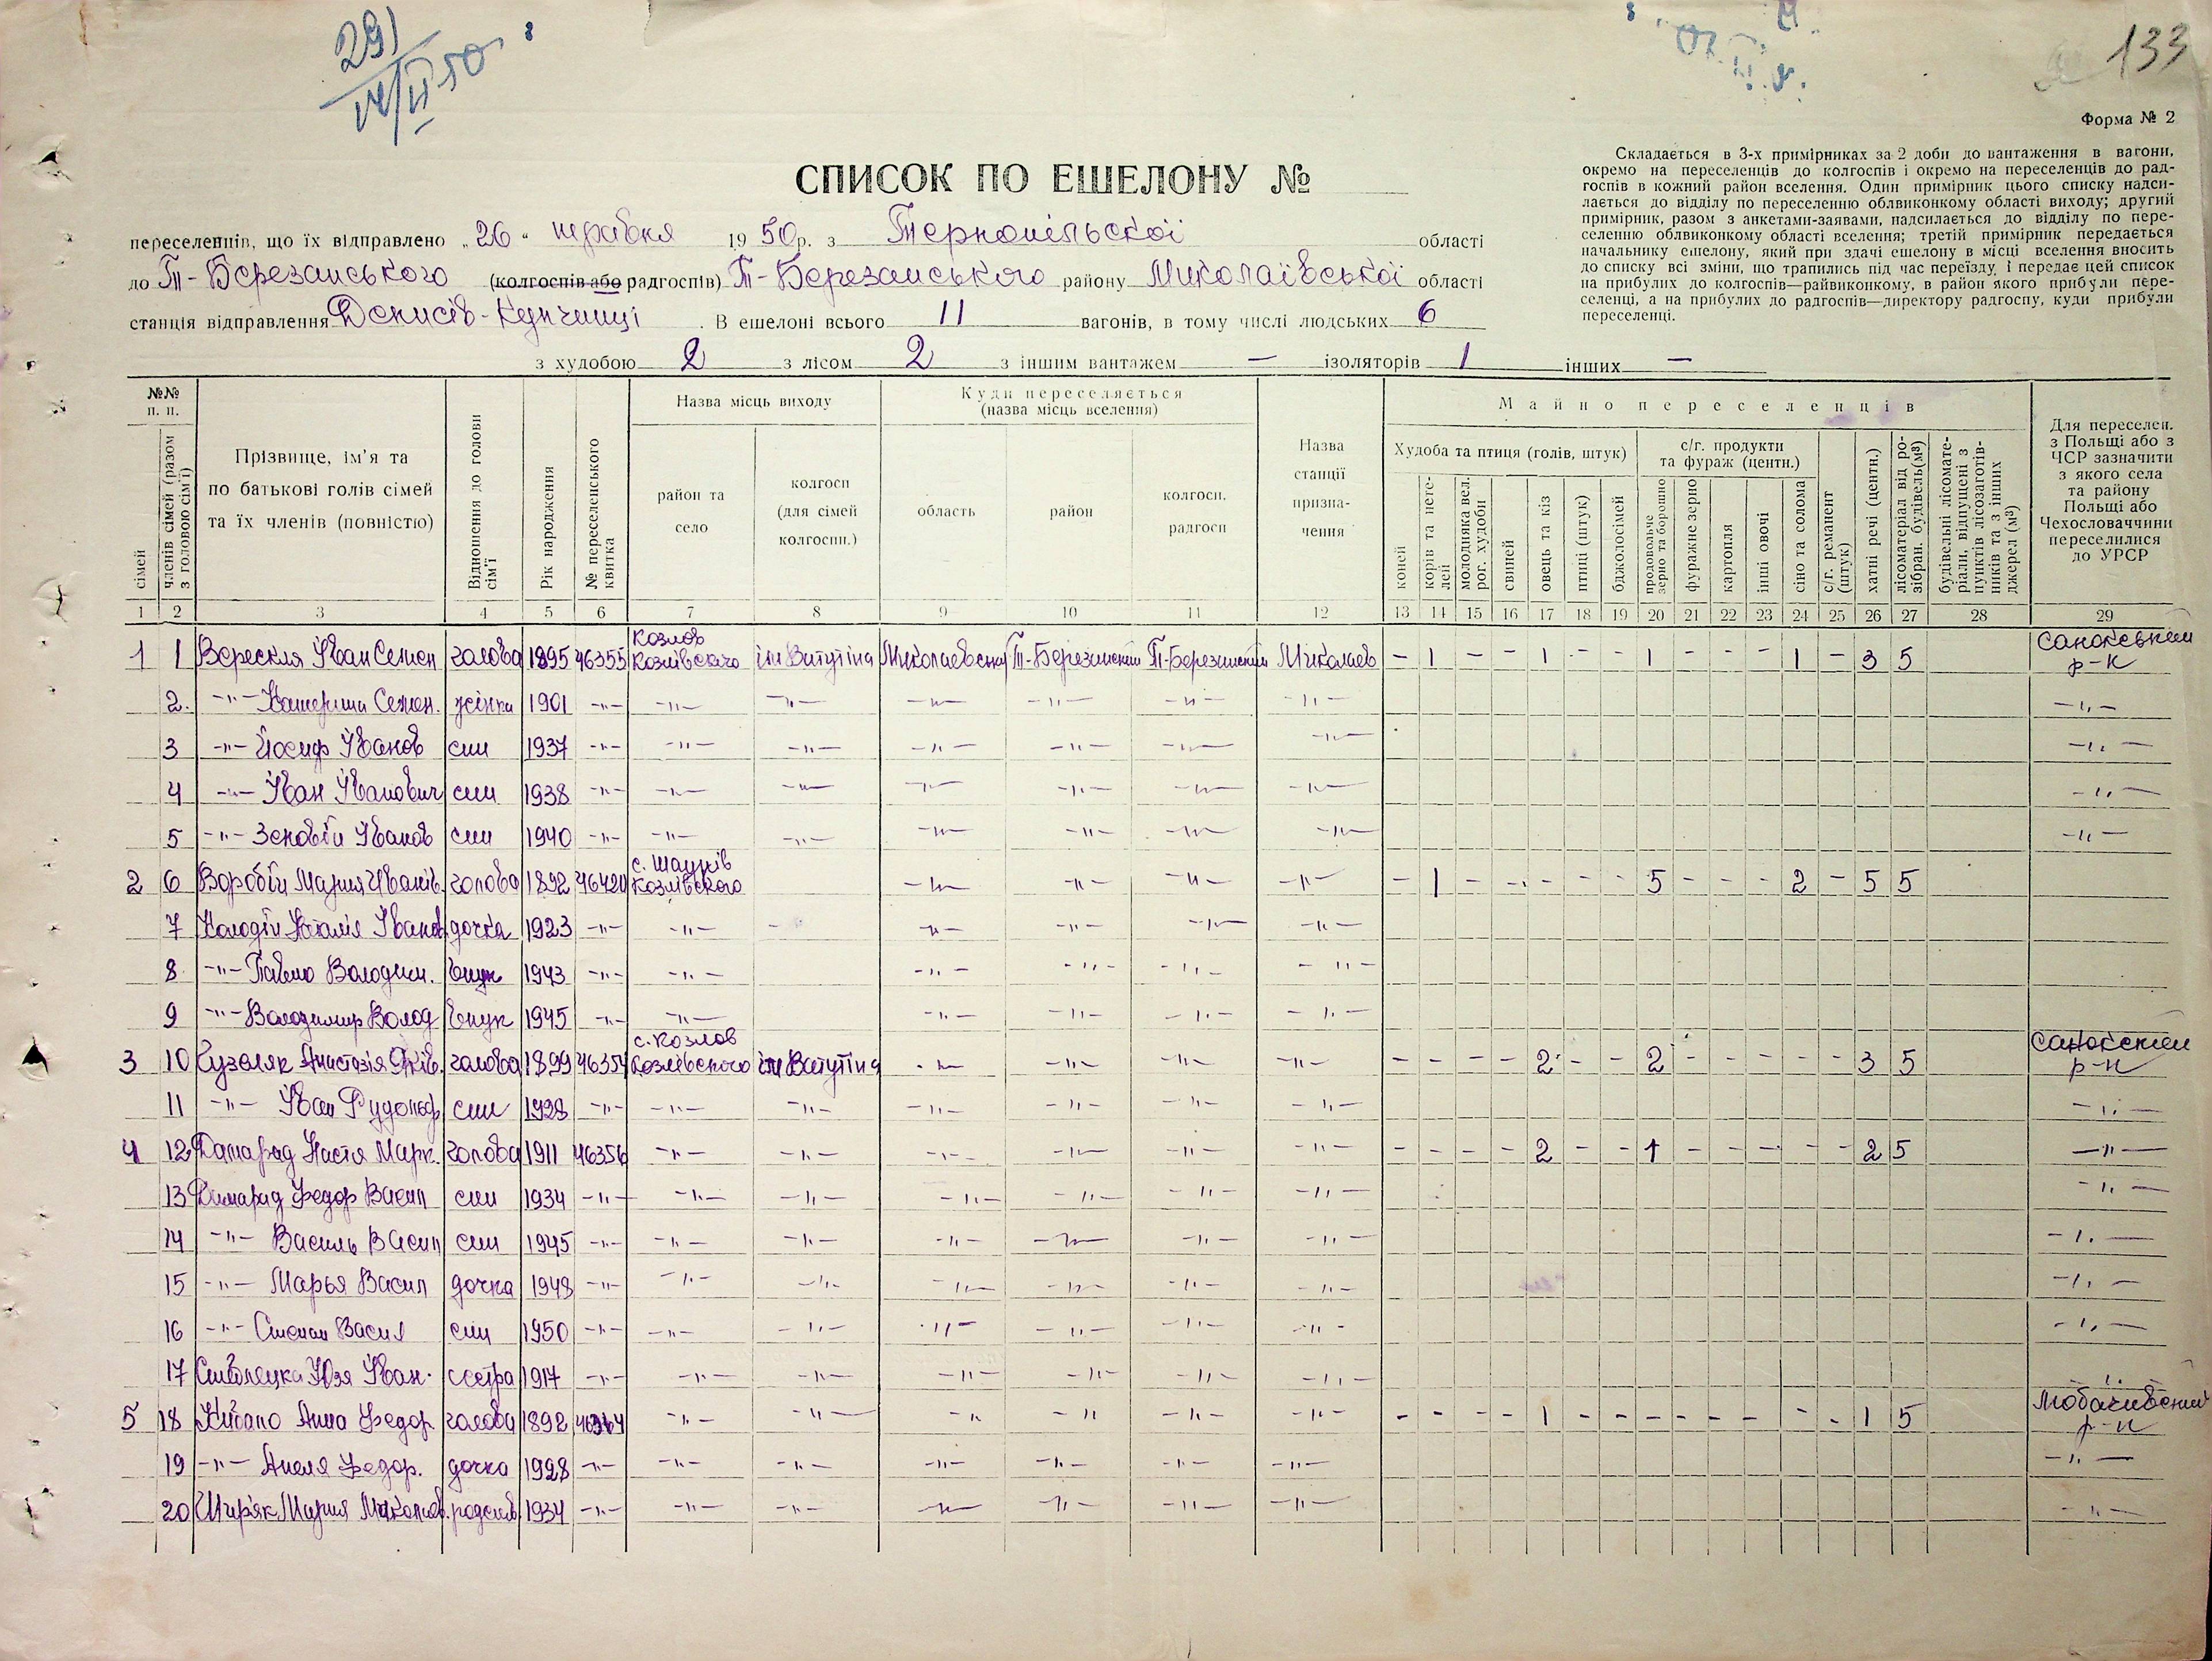 291
14/II 50
133
Форма № 2
СПИСОК ПО ЕШЕЛОНУ №
Складається в 3-х примірниках за 2 доби до вантаження в вагони,
окремо на переселенців до колгоспів і окремо на переселенців до рад-
госпів в кожний район вселення. Один примірник цього списку надси-
лається до відділу по переселенню облвиконкому області виходу; другий
примірник, разом з анкетами-заявами, надсилається до відділу по пере-
селенню облвиконкому області вселення; третій примірник передається
начальнику ешелону, який при здачі ешелону в місці вселення вносить
до списку всі зміни, що трапились під час переїзду, і передає цей список
на прибулих до колгоспів—райвиконкому, в район якого прибули пере-
селенці, а на прибулих до радгоспів—директору радгоспу, куди прибули
переселенці.
переселенців, що їх відправлено „26“ 1950р. з Тернопільської області
до Т-Березанського (колгоспів або радгоспів) Т-Березанського району Миколаївської області
станція відправлення Денисів-Купчинці. В ешелоні всього 11 вагонів, в тому числі людських 6
з худобою 2 з лісом 2 з іншим вантажем — ізоляторів 1 інших —
№№ п. п.
сімей
членів сімей (разом з головою сім'ї)
Прізвище, ім'я та по батькові голів сімей та їх членів (повністю)
Відношення до голови сім'ї
Рік народження
№ переселенського квитка
Назва місць виходу
район та село
колгосп (для сімей колгоспн.)
Куди переселяється (назва місць вселення)
область
район
колгосп. радгосп
Назва станції призна- чення
Майно переселенців
Худоба та птиця (голів, штук)
коней
корів та нете- лей
молодняка вел. рог. худоби
свиней
овець та кіз
птиці (штук)
бджолосімей
с/г. продукти та фураж (центн.)
продовольче зерно та борошно
фуражне зерно
картопля
інші овочі
сіно та солома
с/г. реманент (штук)
хатні речі (центн.)
лісоматеріал від ро- зібран. будівель(м³)
будівельні лісомате- ріали, відпущені з пунктів лісозаготів- ників та з інших джерел (м³)
Для переселен. з Польщі або з ЧСР зазначити з якого села та району Польщі або Чехословаччини переселилися до УРСР
1 2 3 4 5 6 7 8 9 10 11 12 13 14 15 16 17 18 19 20 21 22 23 24 25 26 27 28 29
1 1 Верескля Іван Семен голова 1895 46355 Козлов Козлівского ім Ватутіна Миколаевский Т-Березанский Т-Березанский Миколаев - 1 - - 1 - - 1 - - - 1 - 3 5 Саноксьkий р-к
2. -"- Катерина Семен. жінка 1901 -"- -"- -"- -"- -"- -"- -"- -"-
3 -"- Йосиф Іванов син 1937 -"- -"- -"- -"- -"- -"- -"- -"-
4 -"- Іван Іванович син 1938 -"- -"- -"- -"- -"- -"- -"- -"-
5 -"- Зеновій Іванов син 1940 -"- -"- -"- -"- -"- -"- -"- -"-
2 6 Воробій Мария Іванів. голова 1892 46420 с. Козлівского -"- -"- -"- -"- - 1 - - - - - 5 - - - 2 - 5 5
7 Колодій Наталія Іванов. дочка 1923 -"- -"- -"- -"- -"- -"-
8 -"- Павло Володим. внук 1943 -"- -"- -"- -"- -"- -"-
9 -"- Володимир Волод внук 1945 -"- -"- -"- -"- -"- -"-
3 10 Кузеляк Анастазія Яків. голова 1899 46354 с. Козлов Козлівского ім Ватутіна -"- -"- -"- -"- - - - - 2 - - 2 - - - - - 3 5 Санокский р-н
11 -"- Іван Рудольф син 1928 -"- -"- -"- -"- -"- -"- -"- -"-
4 12 Дамарад Настя Марк. голова 1911 46356 -"- -"- -"- -"- -"- -"- - - - - 2 - - 1 - - - - - 2 5 -"-
13 Дамарад Федор Васил син 1934 -"- -"- -"- -"- -"- -"- -"- -"-
14 -"- Василь Васил син 1945 -"- -"- -"- -"- -"- -"- -"- -"-
15 -"- Марья Васил дочка 1948 -"- -"- -"- -"- -"- -"- -"- -"-
16 -"- Степан Васил син 1950 -"- -"- -"- -"- -"- -"- -"- -"-
17 Юзя Іван. сестра 1917 -"- -"- -"- -"- -"- -"- -"- -"-
5 18 Анна Федор. голова 1892 -"- -"- -"- -"- -"- -"- - - - - 1 - - - - - - - - 1 5 Любачивский р-н
19 -"- Анеля Федор. дочка 1928 -"- -"- -"- -"- -"- -"- -"- -"-
20 Мария Миколаев. родств. 1934 -"- -"- -"- -"- -"- -"- -"- -"-